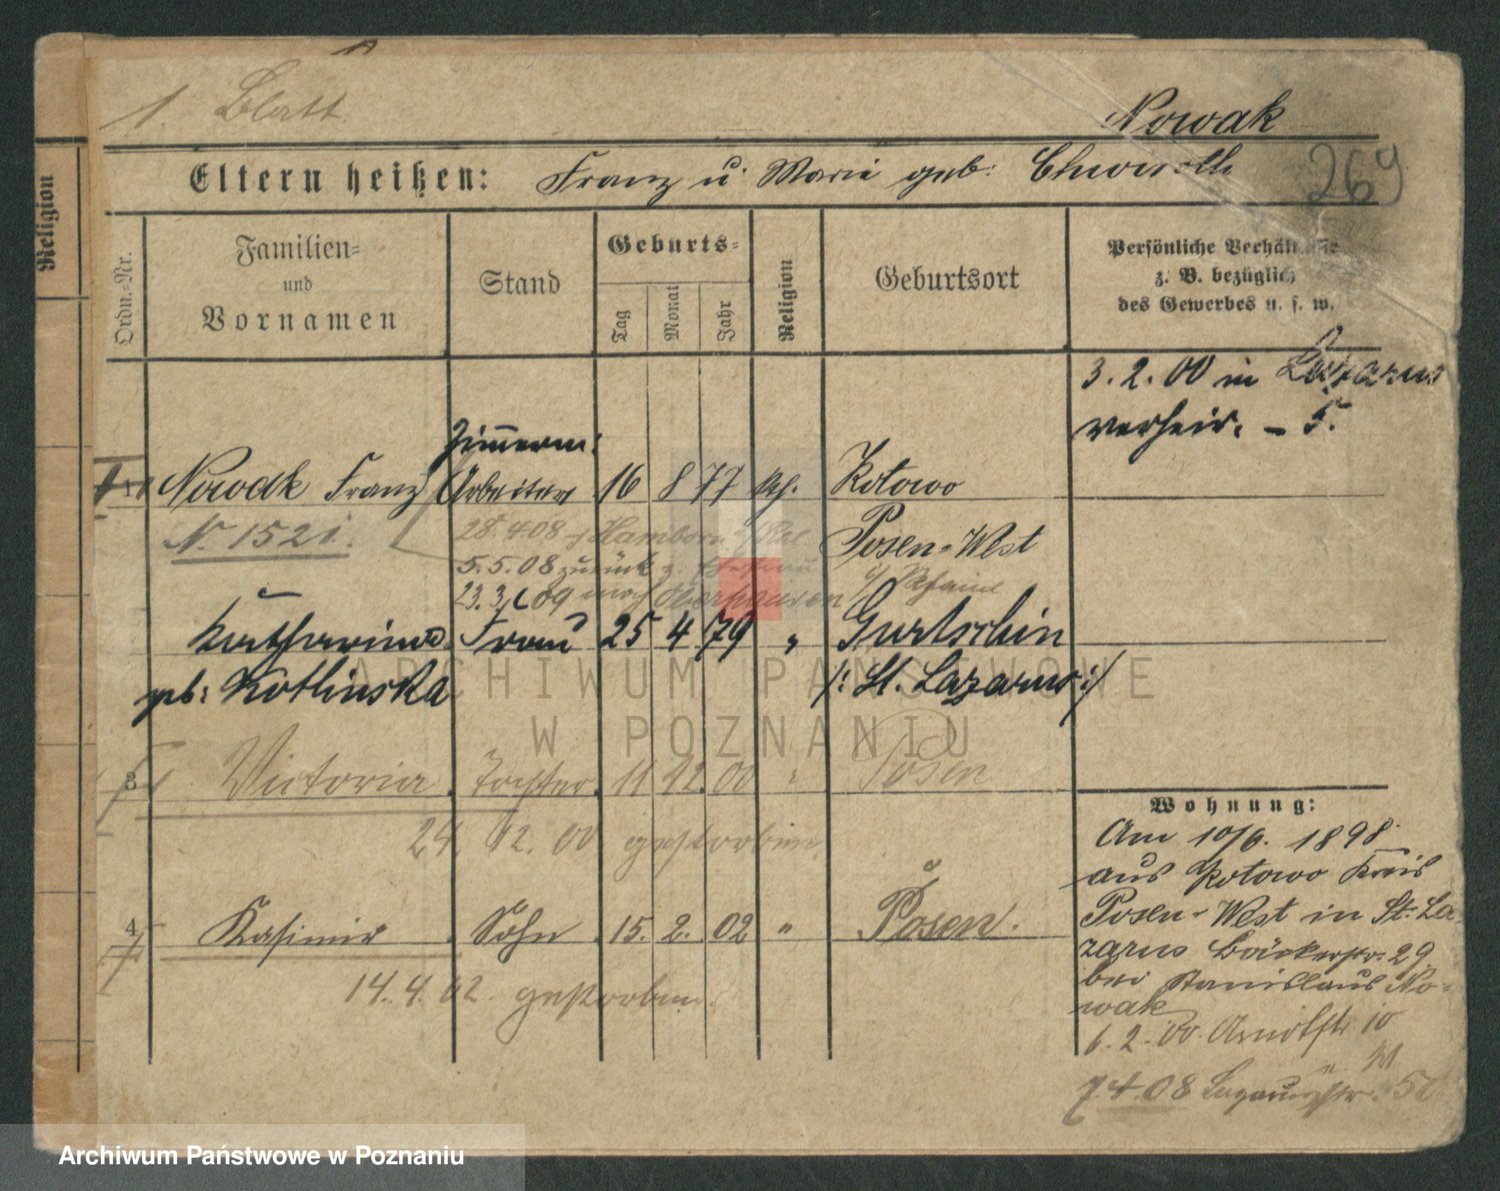 1. Blatt
Nowak
269
Eltern heißen: Franz u. Marie geb.
Religion
Ordn.-Nr.
Familien-
und
Vornamen
Stand
Geburts-
Tag
Monat
Jahr
Religion
Geburtsort
Persönliche Verhältnisse
z. B. bezüglich
des Gewerbes u. s. w.
3. 2. 00 in Lazarus
verheir. – 5.
Zimmerm.
Nowak Franz Arbeiter 16 8 77 kth. Kotowo
N. 1521. 28.4.08 Hamborn
Posen-West
5.5.08 zurück z. Ehefrau
23.3.09 nach Oberhausen
Katharina Frau 25 4 79 " Gurtschin
geb: Kotlinska /: St. Lazarus :/
3 Victoria Tochter 11 12. 00 " Posen
24. 12. 00 gestorben.
Wohnung:
Am 10/6. 1898
aus Kotowo Kreis
Posen-West in St. La-
zarus Bäckerstr. 29
bei Stanislaus No-
wak
4 Kasimir Sohn 15. 2. 02 " Posen.
14. 4. 02. gestorben.
6. 2. 00. Arndtstr. 10
7.4.08 Lazarusstr.
ARCHIWUM PAŃSTWOWE
W POZNANIU
Archiwum Państwowe w Poznaniu